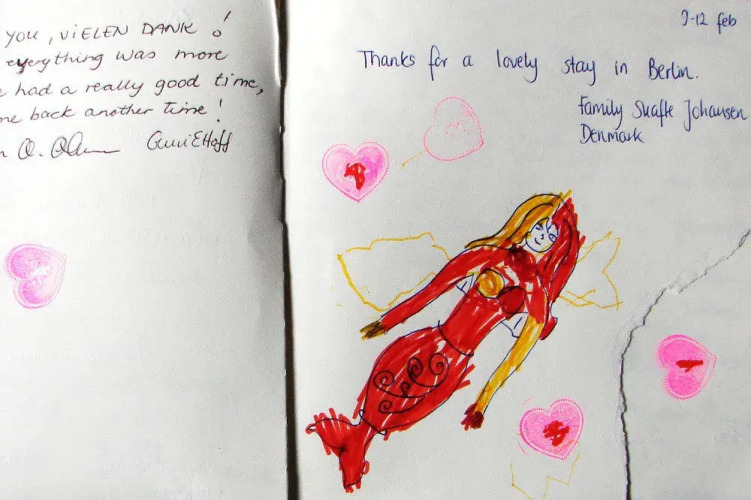 YOU, VIELEN DANK !
everything was more
had a really good time,
back another time !
9-12 feb
Thanks for a lovely stay in Berlin.
Family Skafte Johansen
Denmark